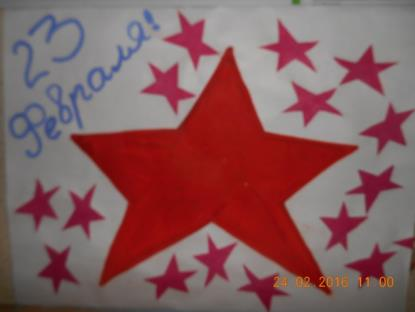 23
Февраля!
24.02.2016 11:00